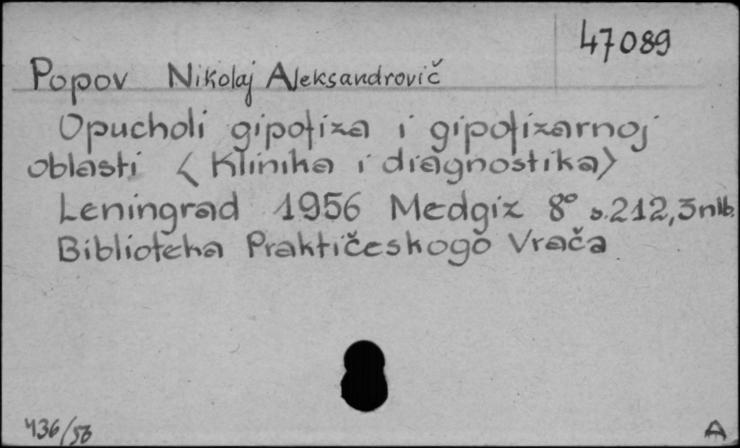 47089
Popov Nikolaj Aleksandrovič
Opucholi gipofiza i gipofizarnoj
oblasti <Klinika i diagnostika>
Leningrad 1956 Medgiz 8° s.212,3nlb.
Biblioteka Praktičeskogo Vrača
436/56
A